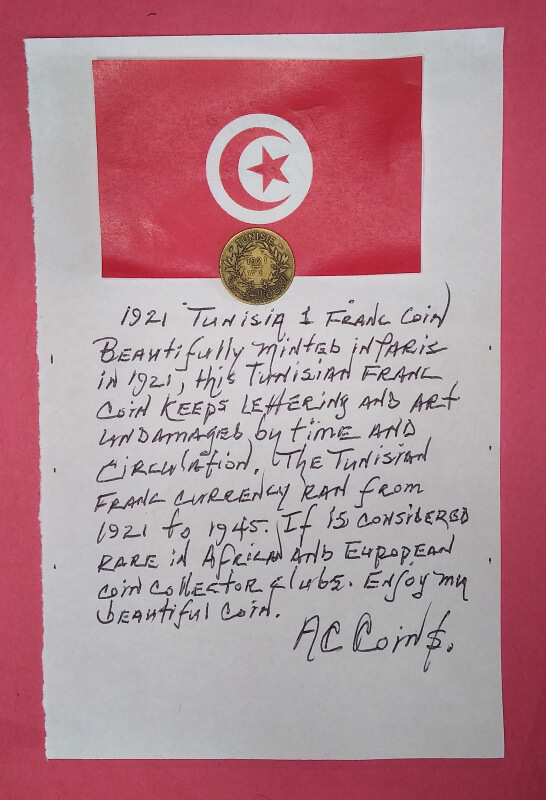 TUNISIE
1921
1921 TUNISIA 1 FRANC COIN
BEAUTIFULLY MINTED IN PARIS
IN 1921, this TUNISIAN FRANC
COIN KEEPS LETTERING AND ART
UNDAMAGED by time AND
CIRCULATION. THE TUNISIAN
FRANC CURRENCY RAN from
1921 to 1945. IT IS CONSIDERED
RARE IN AFRICAN AND EUROPEAN
COIN COLLECTOR CLUBS. ENJOY my
beautiful COIN.
AC COIN$.